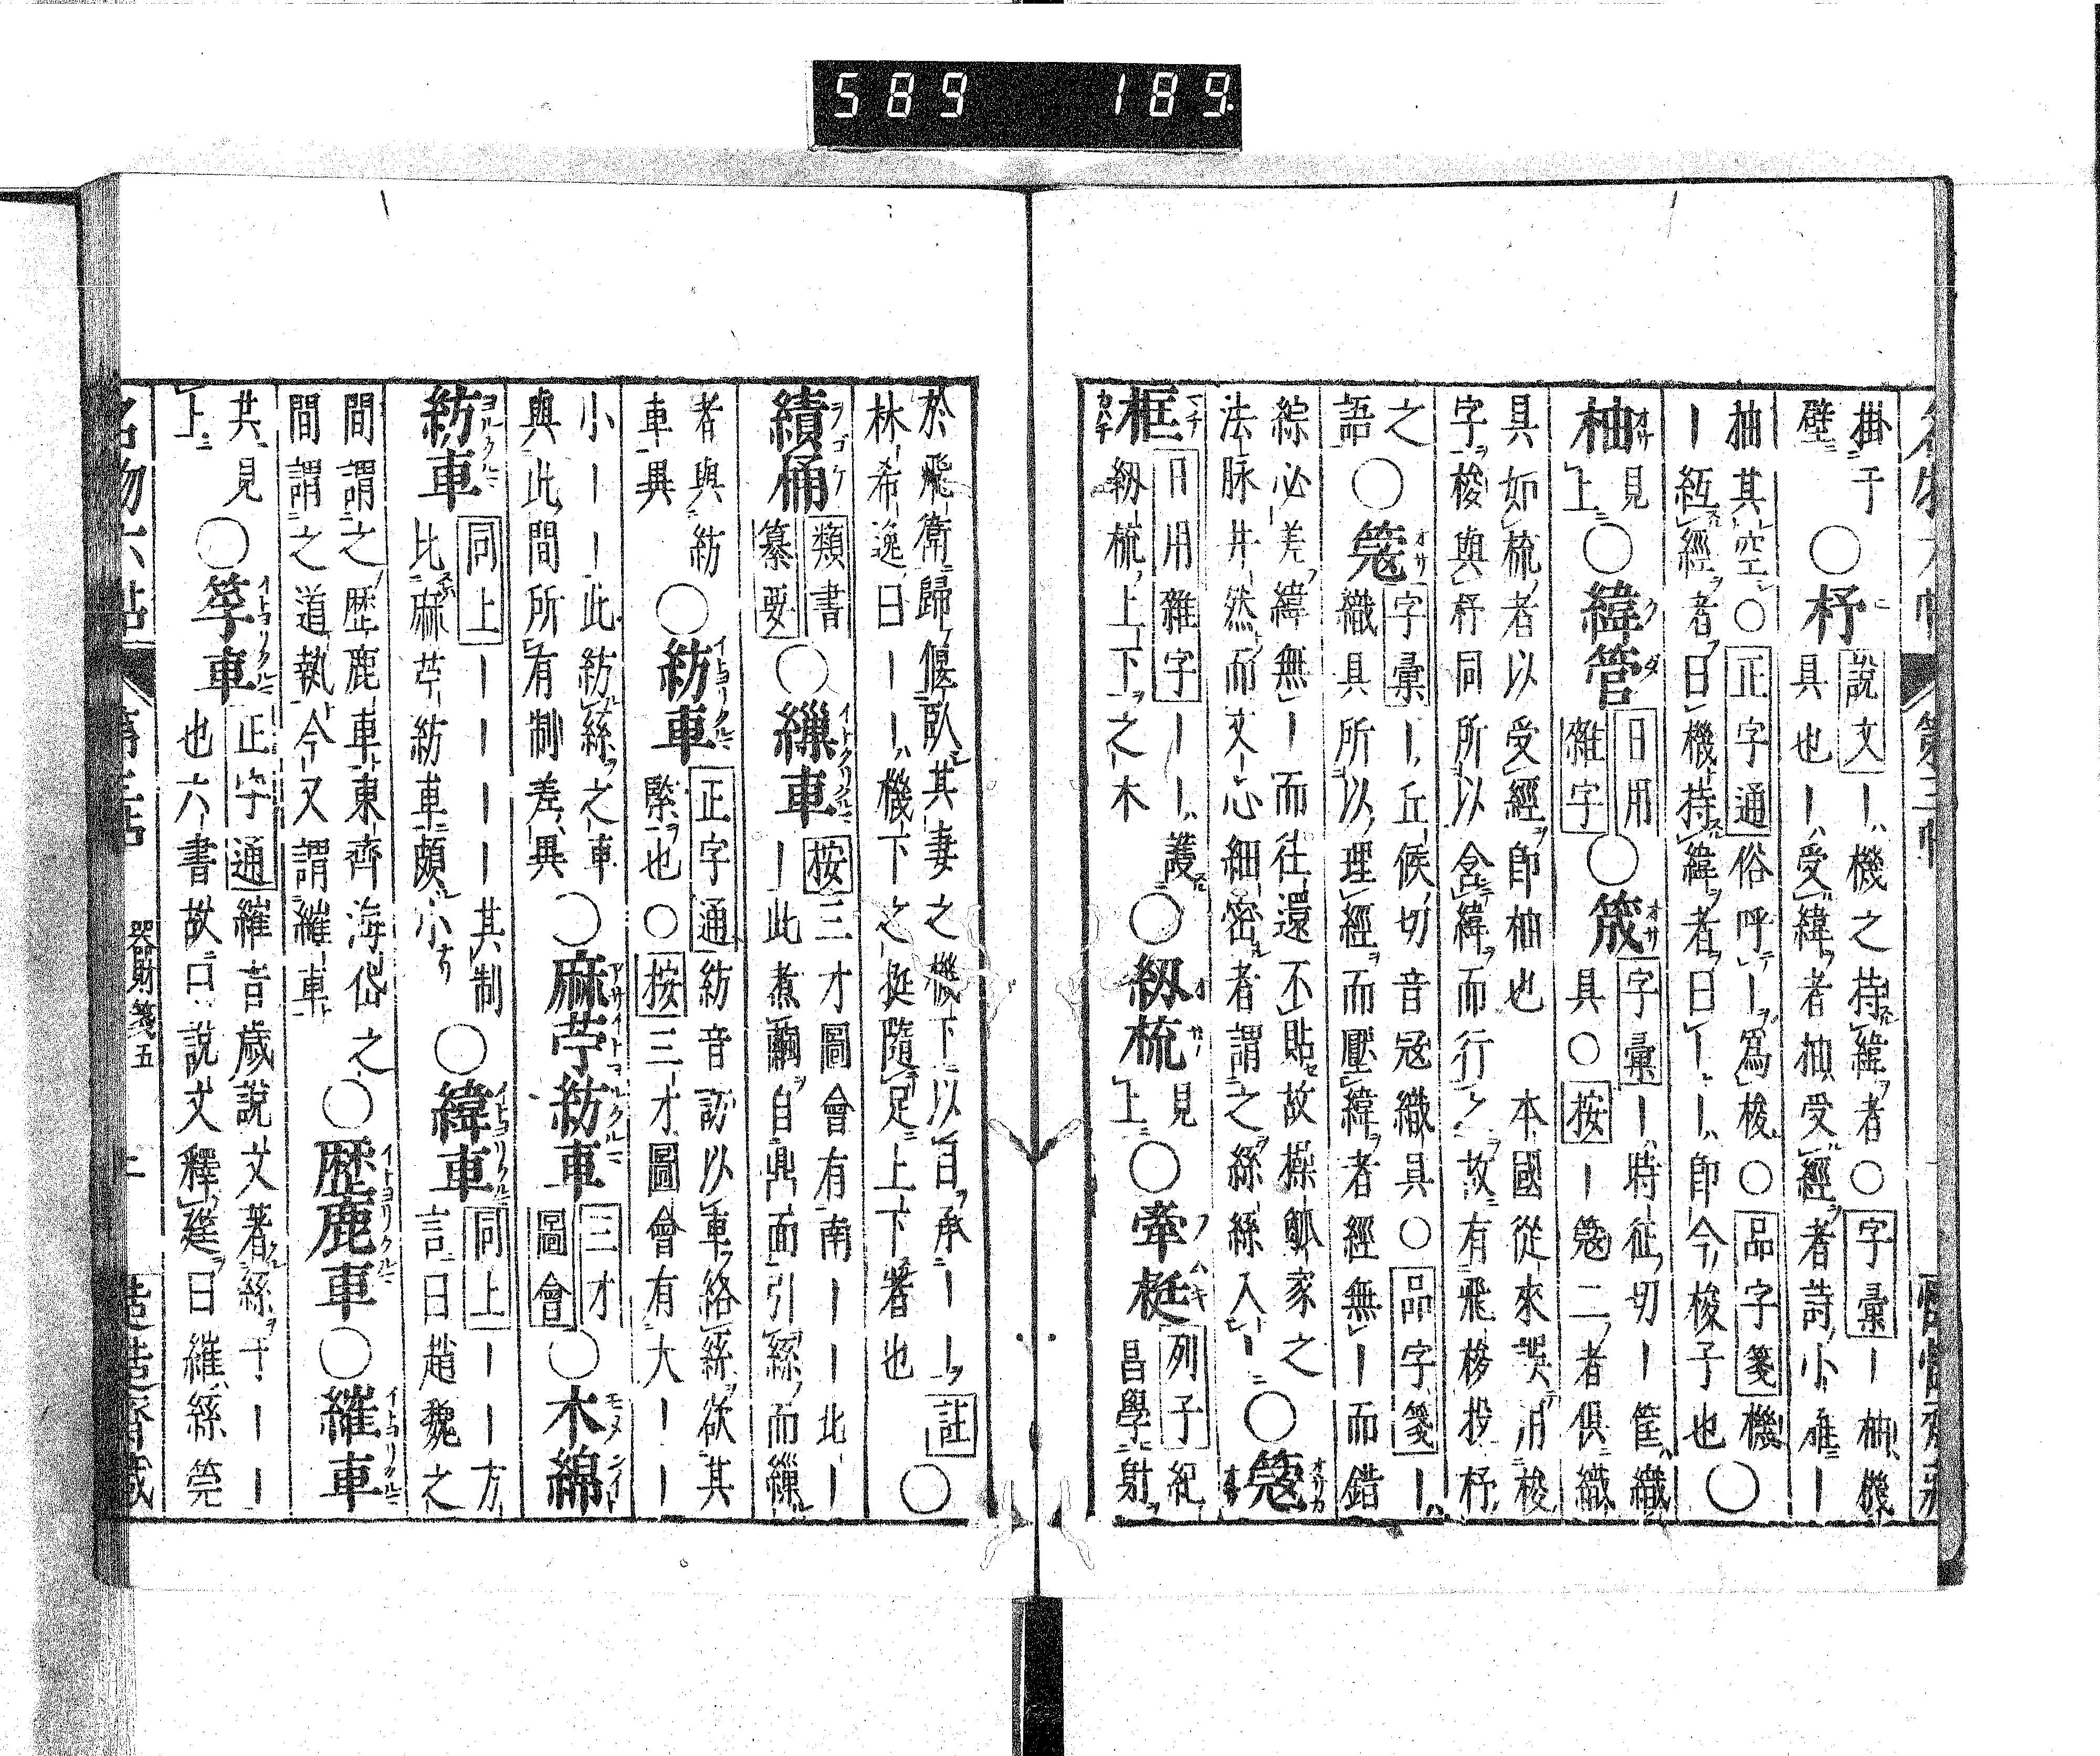 589 189
掛于
壁
○杼
說文｜機之持緯者○字彙｜柚機
具也｜受緯者柚受經者詩小雅｜
柚其空○正字通俗呼｜爲梭○品字箋機
｜絚經者曰機持緯者曰｜｜卽今梭子也○
柚
見
上
○緯管
日用
雜字
○筬
字彙｜時征切｜筐織
具○按｜筬二者俱織
具如梳者以受經卽柚也 本國從來誤用梭
字梭與杼同所以含緯而行之故有飛梭投杼
之
語
○簆
字彙｜丘候切音寇織具○品字箋｜
織具所以理經而壓緯者經無｜而錯
綜必差緯無｜而往還不貼故操觚家之
法脉井然而文心細密者謂之絲絲入｜
○簆
框
日用雜字｜｜護
紉梳上下之木
○紉梳
見
上
○牽梃
列子紀
昌學射
於飛衛歸偃臥其妻之機下以目承｜｜註
林希逸曰｜｜機下之挺隨足上下著也
○
績桶
類書
纂要
○繅車
按三才圖會有南｜｜北｜
｜此煮繭自鼎面引絲而繅
者與紡
車異
○紡車
正字通紡音訪以車絡絲欲其
緊也○按三才圖會有大｜｜
小｜｜此紡絲之車
與此間所有制差異
○麻苧紡車
三才
圖會
○木綿
紡車
同上｜｜｜｜其制
比麻苧紡車頗小
○緯車
同上｜｜方
言曰趙魏之
間謂之歷鹿車東齊海岱之
間謂之道軌今又謂繀車
○歷鹿車○繀車
共見
上
○筟車
正字通繀言歲說文著絲于｜｜
也六書故曰說文釋筳曰繀絲筦
名物六帖 第三帖 器財箋五